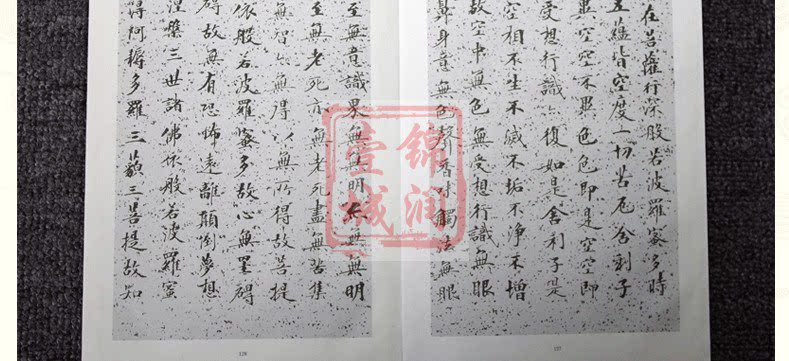 在菩薩行深般若波羅蜜多時
五蘊皆空度一切苦厄舍利子
異空空不異色色即是空空即
受想行識亦復如是舍利子是
空相不生不滅不垢不淨不增
故空中無色無受想行識無眼
鼻身意無色聲香味觸法無眼
127
至無意識界無無明亦無無明
至無老死亦無老死盡無苦集
無智亦無得以無所得故菩提
依般若波羅蜜多故心無罣礙
礙故無有恐怖遠離顛倒夢想
涅槃三世諸佛依般若波羅蜜
得阿耨多羅三藐三菩提故知
128
锦润
壹城